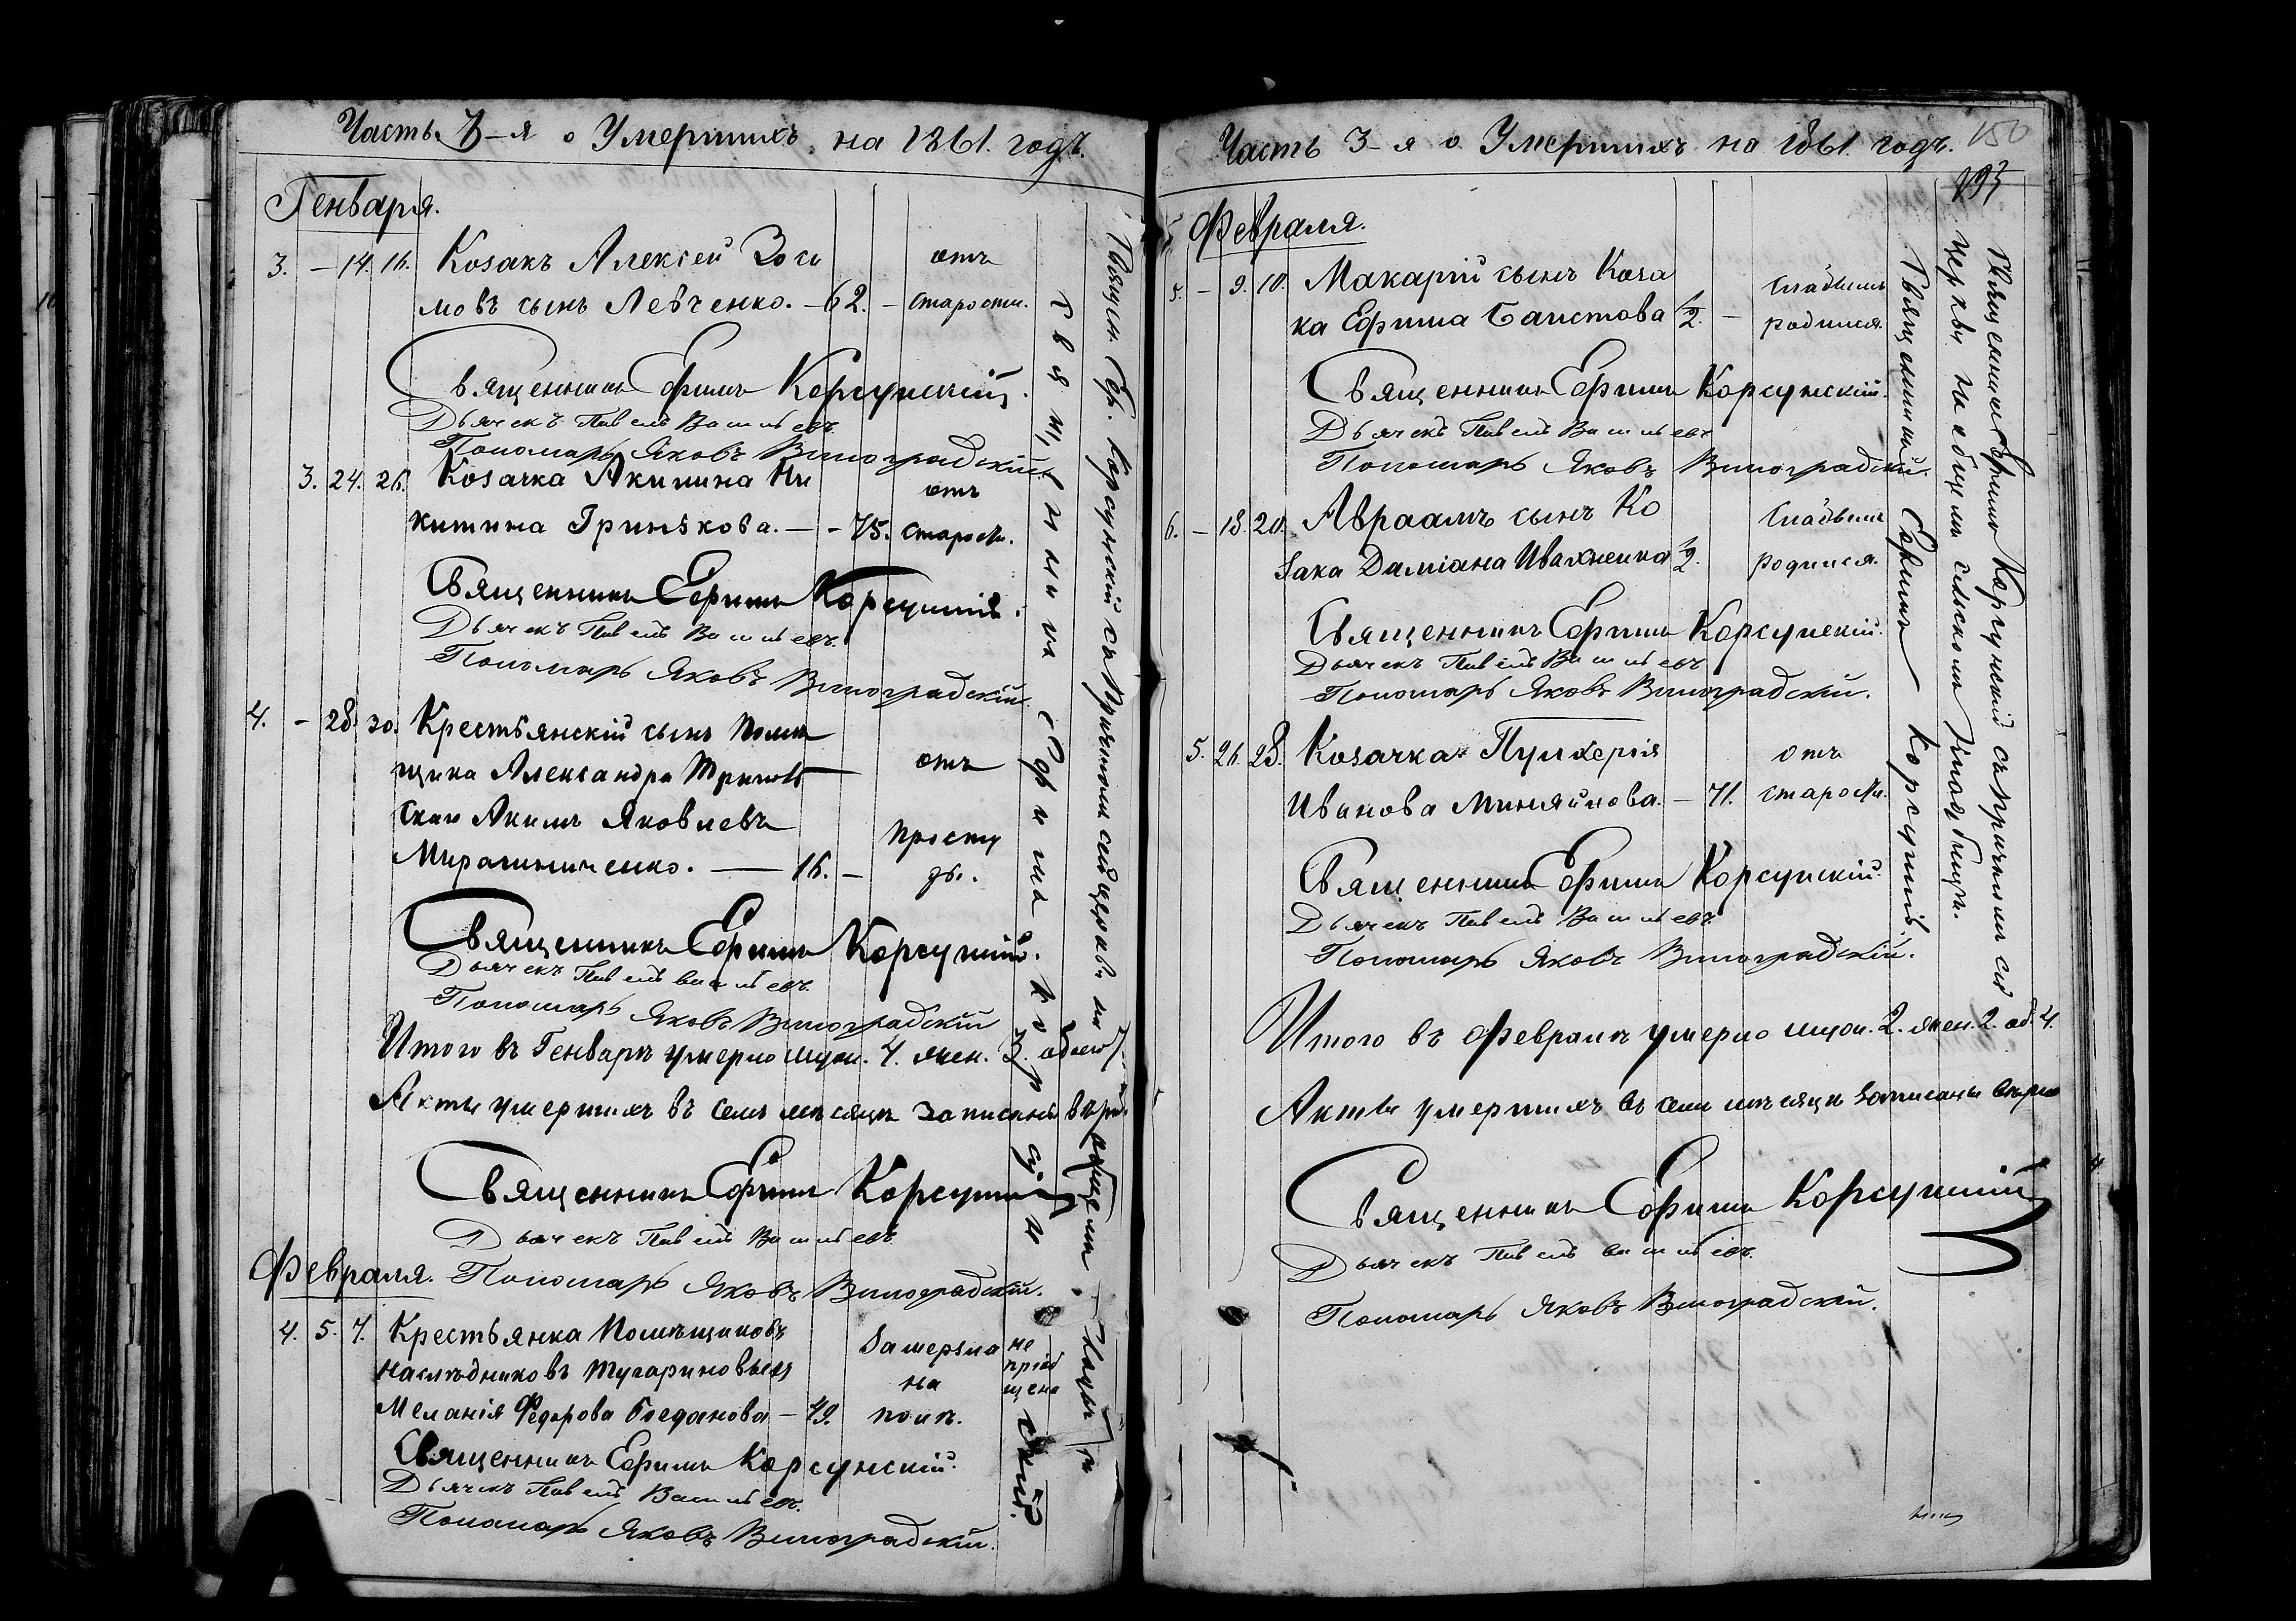 Часть 3-я о Умершихъ на 1861. годъ.
Генваря.
3. – 14. 16. Козакъ Алексей Зоси отъ
мовъ сынъ Левченко. – 62. – старости.
Священникъ Ефимъ Корсунскій.
Дьячекъ Павелъ Васильевъ.
Пономарь Яковъ Виноградскій.
3. 24. 26. Козачка Акилина Ни отъ
китина Гринькова. – – 75. старости.
Священникъ Ефимъ Корсунскій.
Дьячекъ Павелъ Васильевъ.
Пономарь Яковъ Виноградскій.
4. – 28. 30. Крестьянскій сынъ Помѣ
щика Александра отъ
скаго Акимъ Яковлевъ
Мирошниченко. – 16. – просту
ды.
Священникъ Ефимъ Корсунскій.
Дьячекъ Павелъ Васильевъ.
Пономарь Яковъ Виноградскій
Итого въ Генварѣ умерло муж. 4. жен. 3. обоего 7.
Акты умершихъ въ семъ мѣсяцѣ записаны вѣрно
Священникъ Ефимъ Корсунскій
Дьячекъ Павелъ Васильевъ
Пономарь Яковъ Виноградскій.
Февраля.
4. 5. 7. Крестьянка Помѣщиковъ Замерзла не
наслѣдниковъ Тугариновыхъ на пріоб
щена
Меланія Федорова Богданова – 49. полѣ.
Священникъ Ефимъ Корсунскій.
Дьячекъ Павелъ Васильевъ.
Пономарь Яковъ Виноградскій.
Священникъ Ефимъ Корсунскій
Священ. Еф. Корсунскій съ Причтомъ сей церкви на общемъ
Часть 3-я о Умершихъ на 1861. годъ.
150
195
Февраля.
5. – 9. 10. Макарій сынъ Коза слабымъ
ка Ефима Баистова 1/2. – родился.
Священникъ Ефимъ Корсунскій.
Дьячекъ Павелъ Васильевъ
Пономарь Яковъ Виноградскій.
6. – 18. 20. Авраамъ сынъ Ко слабымъ
зака Даміана Ивахненка 1/2. родился.
Священникъ Ефимъ Корсунскій.
Дьячекъ Павелъ Васильевъ
Пономарь Яковъ Виноградскій.
5. 26. 28. Козачка Пулхерія отъ
Иванова Миняйлова. – 71. старости.
Священникъ Ефимъ Корсунскій.
Дьячекъ Павелъ Васильевъ
Пономарь Яковъ Виноградскій.
Итого въ Февралѣ умерло муж. 2. жен. 2. об. 4.
Акты умершихъ въ семъ мѣсяцѣ записаны вѣрно
Священникъ Ефимъ Корсунскій
Дьячекъ Павелъ Васильевъ.
Пономарь Яковъ Виноградскій.
Священникъ Ефимъ Корсунскій.
Священникъ Ефимъ Корсунскій съ причтомъ сей
церкви на общемъ сельскомъ кладбищѣ.